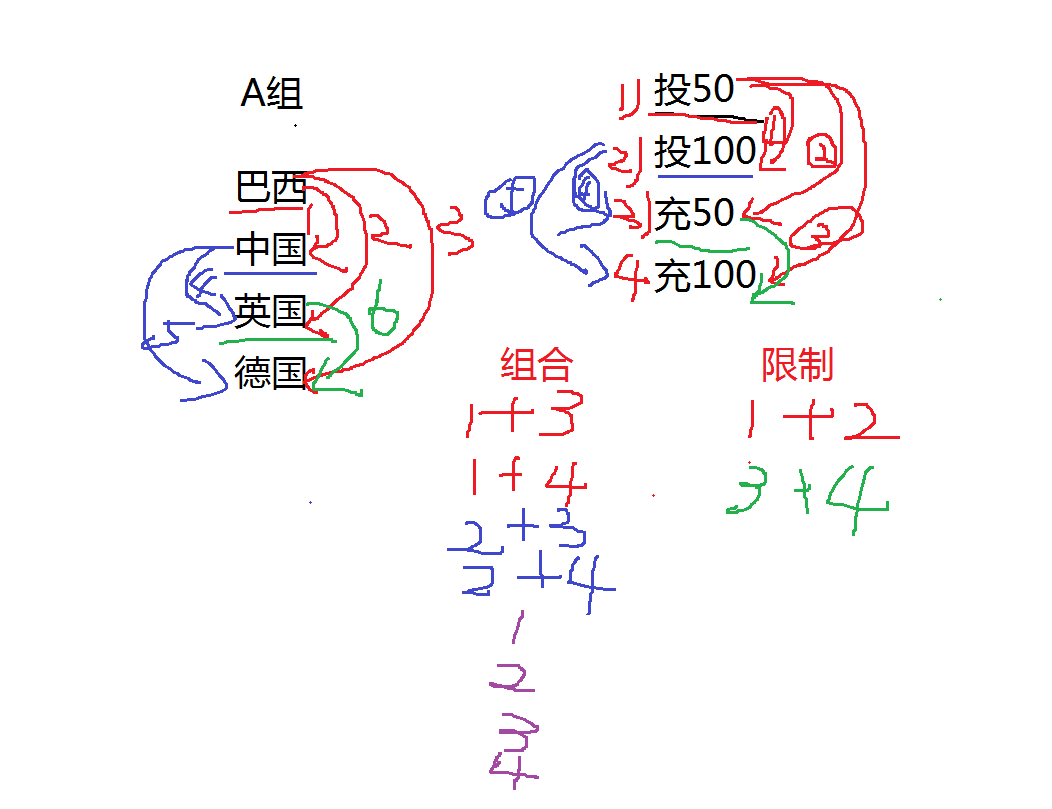 A组
巴西
中国
英国
德国
1
2
3
5
6
1) 投50
2) 投100
3) 充50
4 充100
1
2
3
4
组合
1+3
1+4
2+3
2+4
1
2
3
4
限制
1+2
3+4